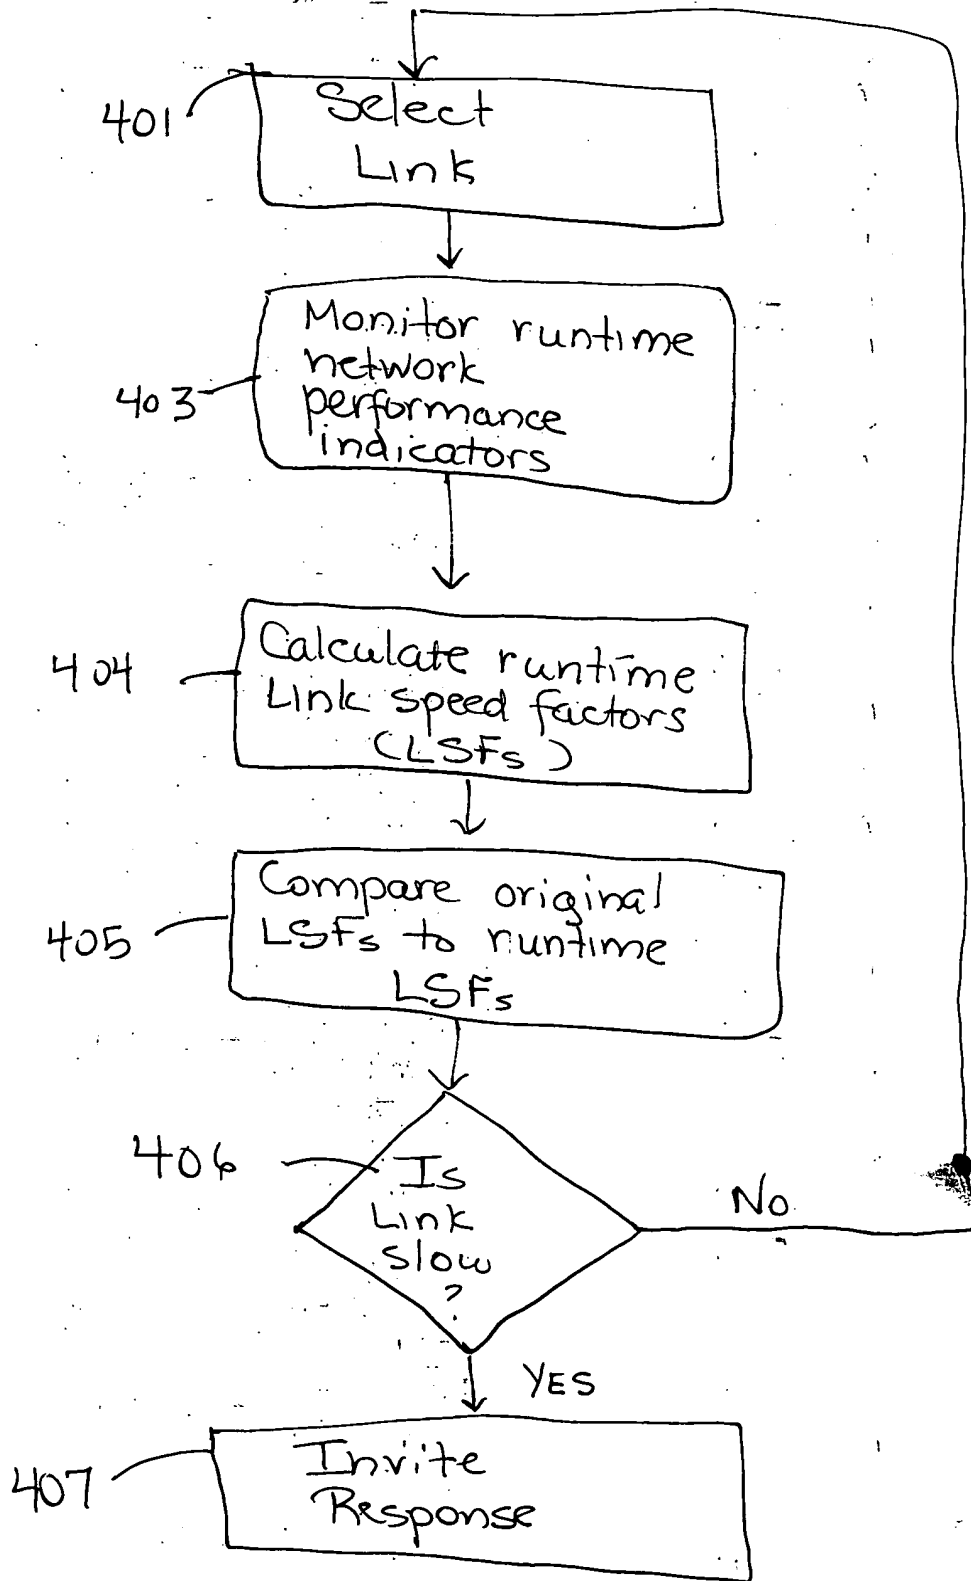 401
Select
Link
403
Monitor runtime
network
performance
indicators
404
Calculate runtime
Link speed factors
(LSFs)
405
Compare original
LSFs to runtime
LSFs
406
Is
Link
slow
?
No
YES
407
Invite
Response